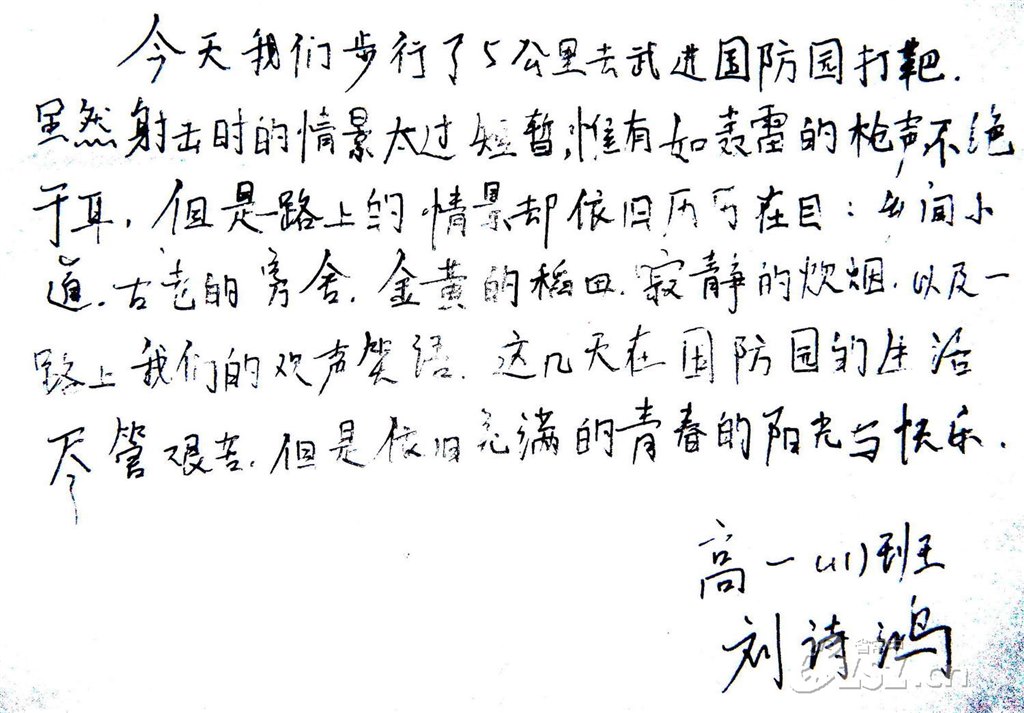 今天我们步行了5公里去武进国防园打靶.
虽然射击时的情景太过短暂,惟有如轰雷的枪声不绝
于耳,但是路上的情景却依旧历历在目:乡间小
道.古老的房舍.金黄的稻田.寂静的炊烟.以及一
路上我们的欢声笑语.这几天在国防园的生活
尽管艰苦.但是依旧充满的青春的阳光与快乐.
高一(11)班
刘诗鸿